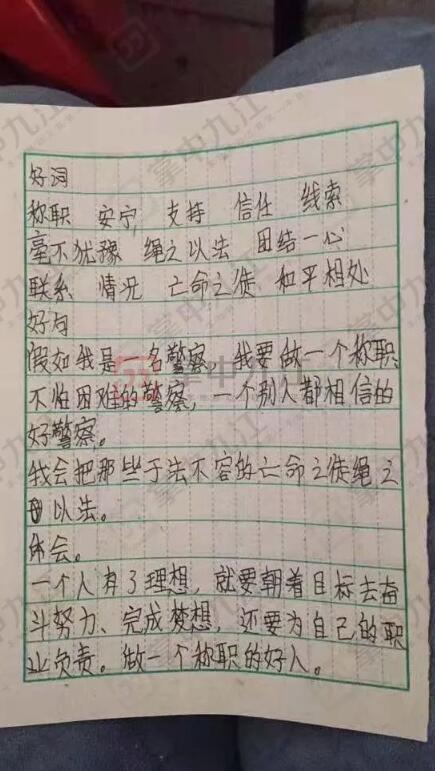 好词
称职 安宁 支持 信任 线索
毫不犹豫 绳之以法 团结一心
联系 情况 亡命之徒 和平相处
好句
假如我是一名警察,我要做一个称职
不怕困难的警察,一个别人都相信的
好警察。
我会把那些于法不容的亡命之徒绳之
以法。
体会。
一个人有了理想,就要朝着目标去奋
斗努力、完成梦想,还要为自己的职
业负责。做一个称职的好人。
掌中九江